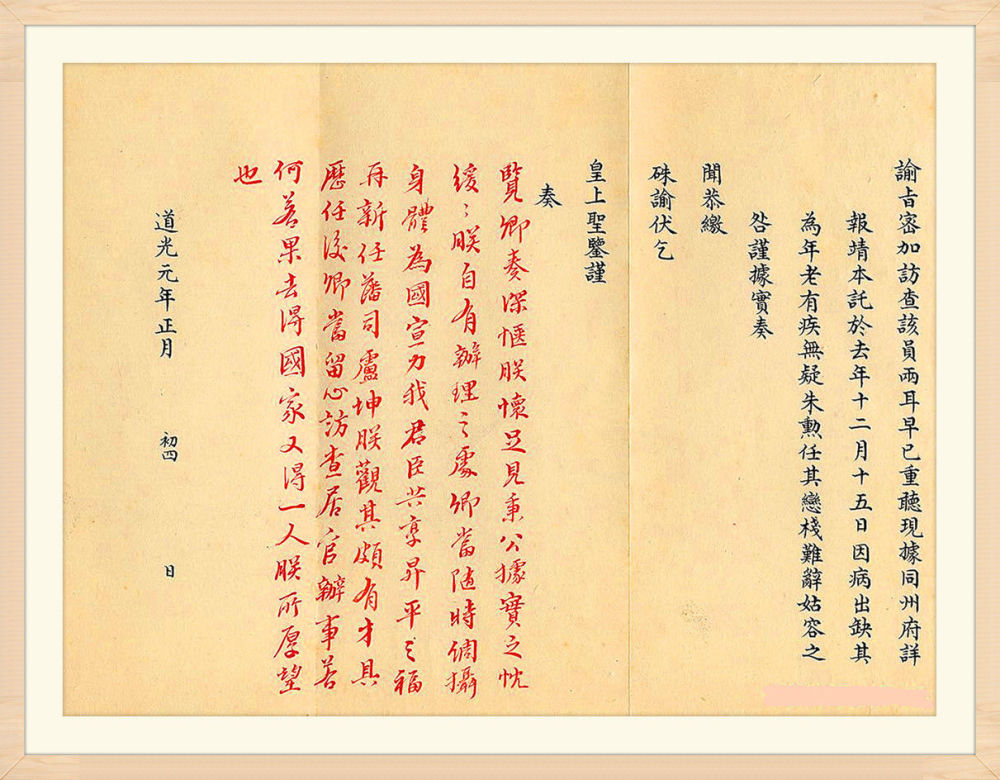 諭旨密加訪查該員兩耳早已重聽現據同州府詳
報靖本託於去年十二月十五日因病出缺其
為年老有疾無疑朱勲任其戀棧難辭姑容之
咎謹據實奏
聞恭繳
硃諭伏乞
皇上聖鑒謹
奏
覽卿奏深愜朕懷足見秉公據實之忱
緩緩朕自有辦理之處卿當隨時倜攝
身體為國宣力我君臣共享昇平之福
再新任藩司盧坤朕觀其頗有才具
歷任後卿當留心訪查居官辦事若
何若果去得國家又得一人朕所厚望
也
道光元年正月 初四 日